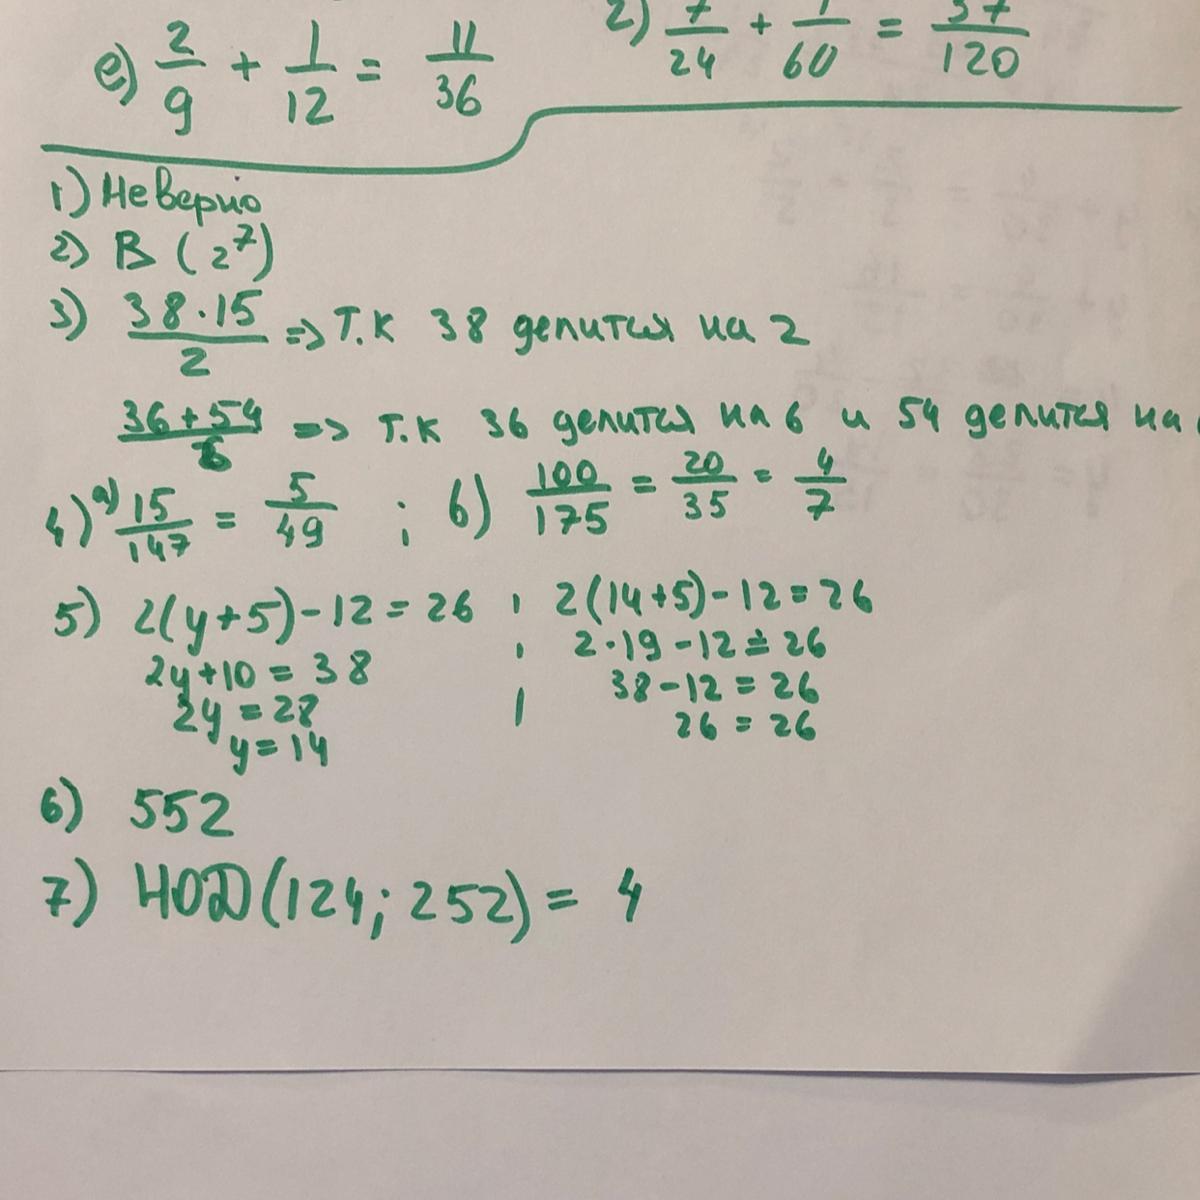 е) 2/9 + 1/12 = 11/36
2) 7/24 + 1/60 = 37/120
1) Неверно
2) В (2^7)
3) 38·15/2 => Т.К 38 делится на 2
36+54/6 => т.к 36 делится на 6 и 54 делится на
4) а) 15/147 = 5/49 ; б) 100/175 = 20/35 = 4/7
5) 2(y+5)-12=26 2(14+5)-12=26
2y+10=38 2·19-12=26
2y=28 38-12=26
y=14 26=26
6) 552
7) НОД(124;252)= 4